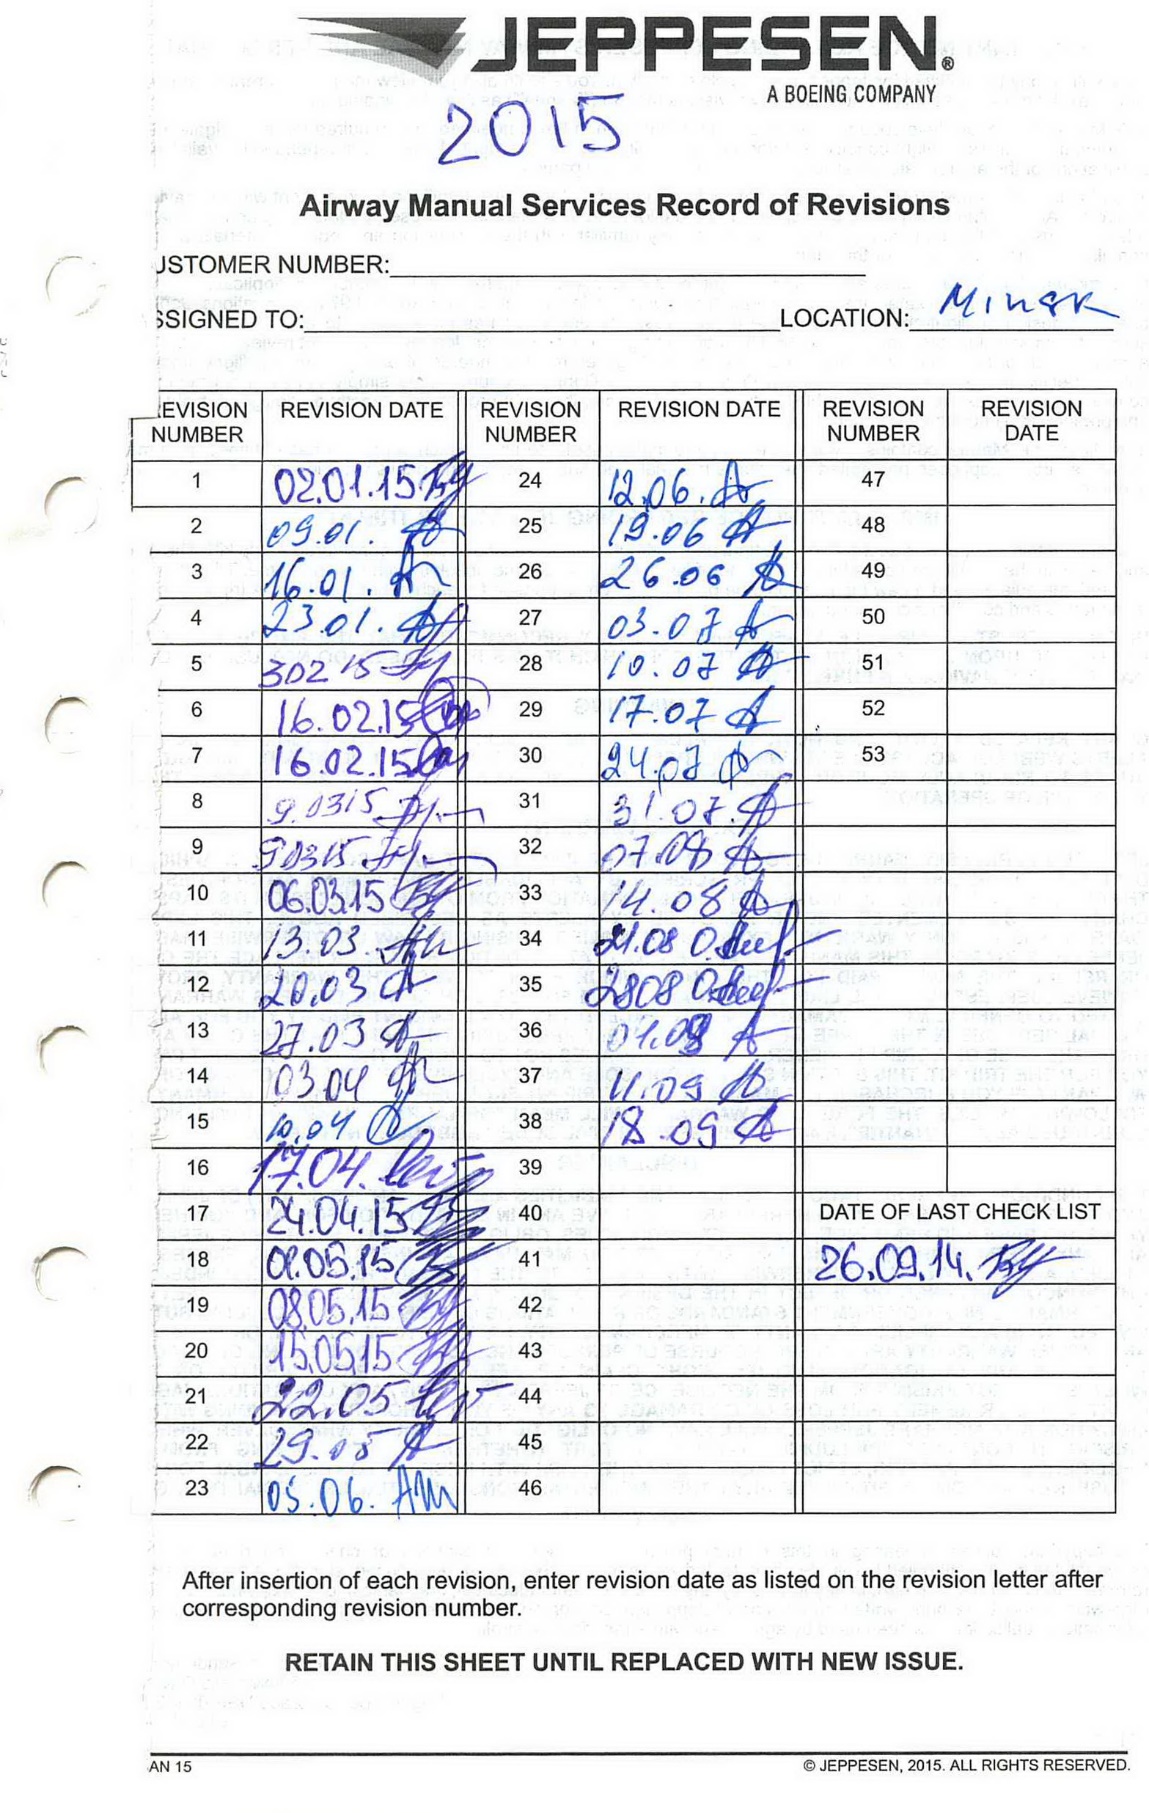 JEPPESEN®
A BOEING COMPANY
2015
Airway Manual Services Record of Revisions
USTOMER NUMBER:
SSIGNED TO: LOCATION: Minsk
EVISION NUMBER REVISION DATE REVISION NUMBER REVISION DATE REVISION NUMBER REVISION DATE
1 02.01.15 24 12.06. 47
2 09.01. 25 19.06 48
3 16.01. 26 26.06 49
4 23.01. 27 03.07 50
5 30215 28 10.07 51
6 16.02.15 29 17.07 52
7 16.02.15 30 24.07 53
8 9.0315 31 31.07.
9 90315 32 07.08
10 06.03.15 33 14.08
11 13.03. 34 21.08
12 20.03 35 2808
13 27.03 36 01.09
14 03.04 37 11.09
15 10.04 38 18.09
16 17.04. 39
17 24.04.15 40 DATE OF LAST CHECK LIST
18 01.05.15 41 26.09.14.
19 08.05.15 42
20 15.05.15 43
21 22.05 44
22 29.05 45
23 05.06. 46
After insertion of each revision, enter revision date as listed on the revision letter after
corresponding revision number.
RETAIN THIS SHEET UNTIL REPLACED WITH NEW ISSUE.
AN 15 © JEPPESEN, 2015. ALL RIGHTS RESERVED.